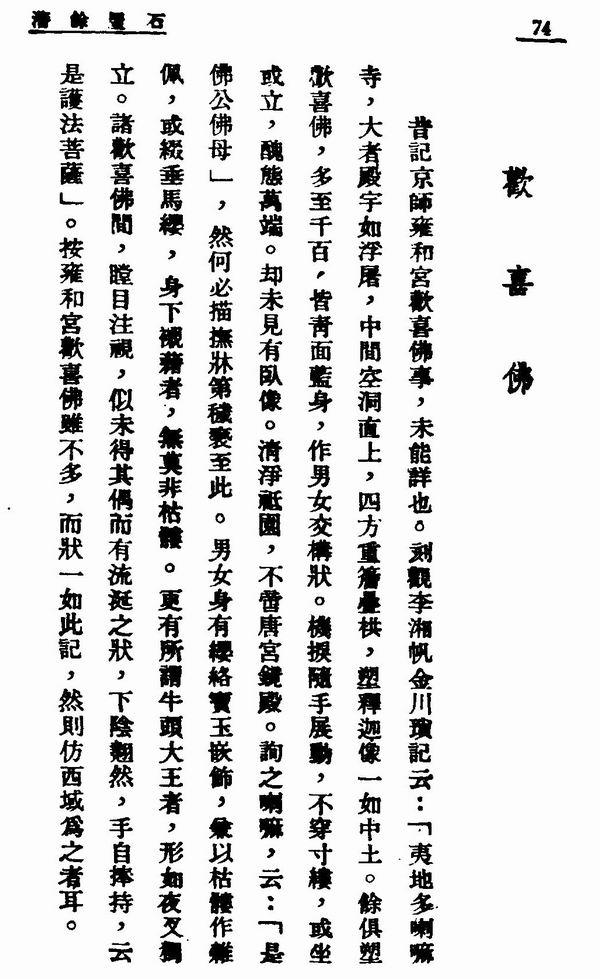 石璽餘瀋
74
歡喜佛
昔記京師雍和宮歡喜佛事，未能詳也。刻觀李湘帆金川瑣記云：「夷地多喇嘛
寺，大者殿宇如浮屠，中間空洞直上，四方重簷疊栱，塑釋迦像一如中土。餘俱塑
歡喜佛，多至千百，皆靑面藍身，作男女交構狀。機捩隨手展動，不穿寸縷，或坐
或立，醜態萬端。却未見有臥像。淸淨祇園，不啻唐宮鏡殿。詢之喇嘛，云：「是
佛公佛母」，然何必描撫牀第穢褻至此。男女身有纓絡寶玉嵌飾，兼以枯髏作雜
佩，或綴垂馬纓，身下襯藉者，無莫非枯髏。更有所謂牛頭大王者，形如夜叉獨
立。諸歡喜佛間，瞠目注視，似未得其偶而有流涎之狀，下陰翹然，手自捧持，云
是護法菩薩」。按雍和宮歡喜佛雖不多，而狀一如此記，然則仿西域爲之者耳。